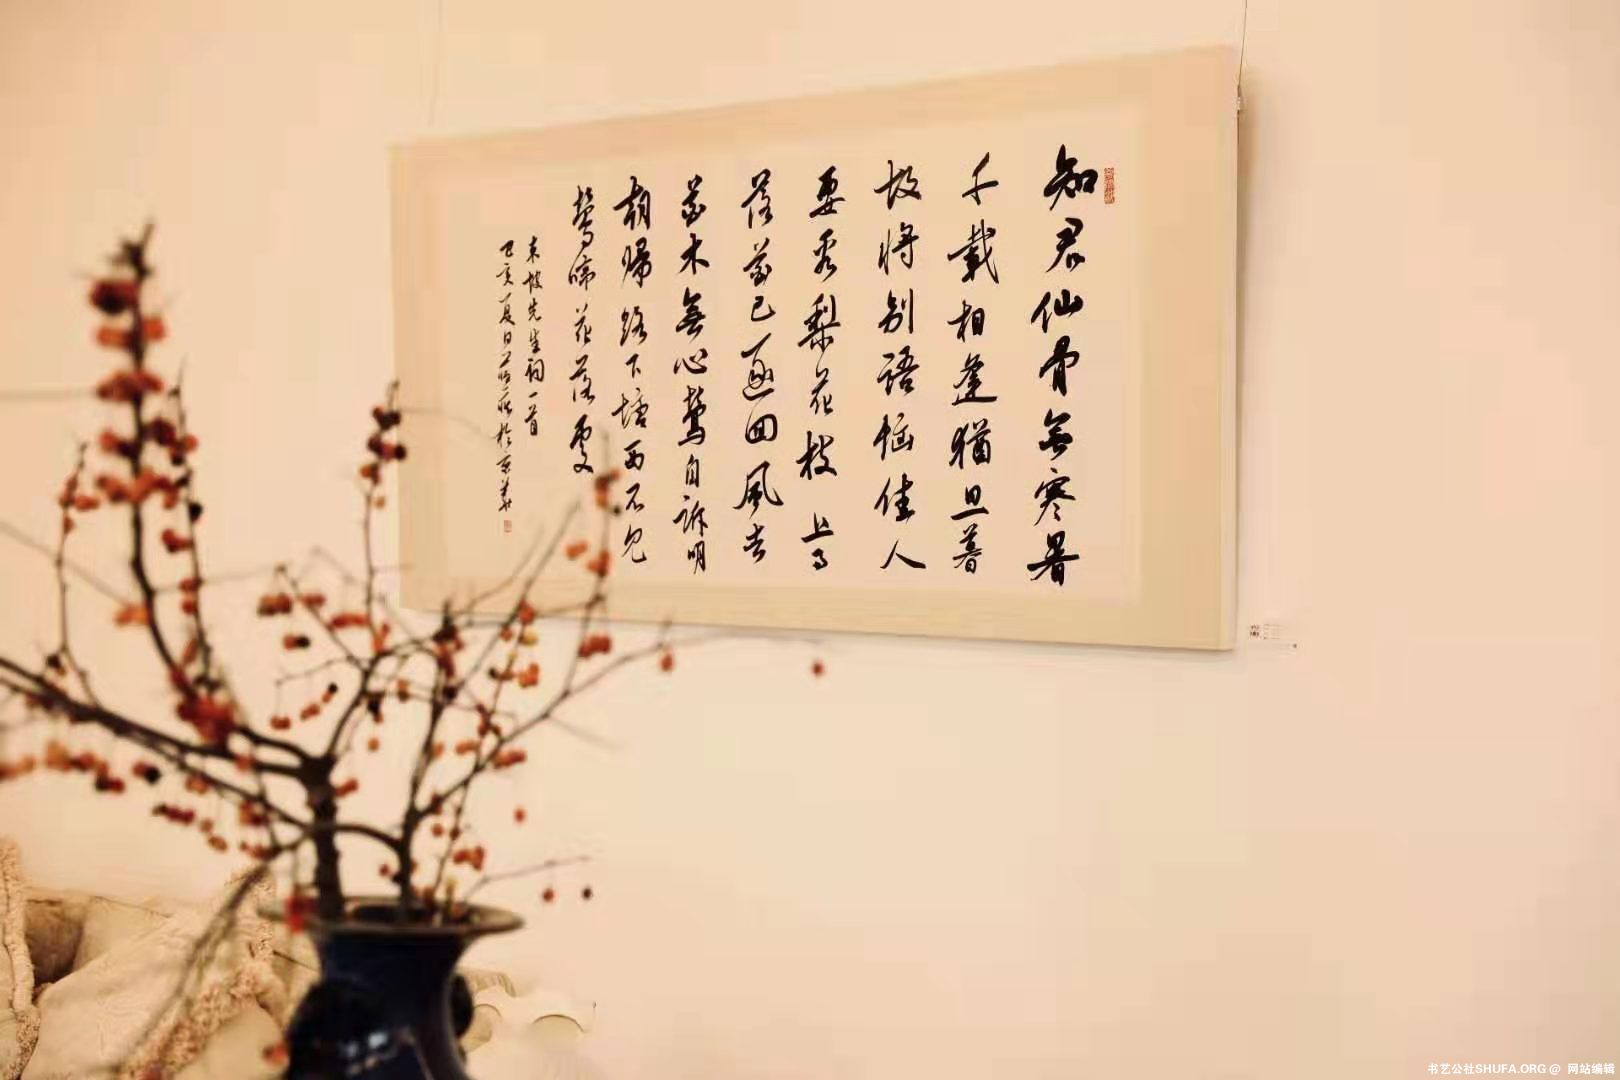 知君仙骨無寒暑
千載相逢猶旦暮
故將别語惱佳人
要看梨花枝上雨
落花已逐回風去
花本無心鶯自訴明
朝歸路下塘西不見
鶯啼花落處
東坡先生詞一首
己亥夏日於京華
书艺公社SHUFA.ORG @ 网站编辑